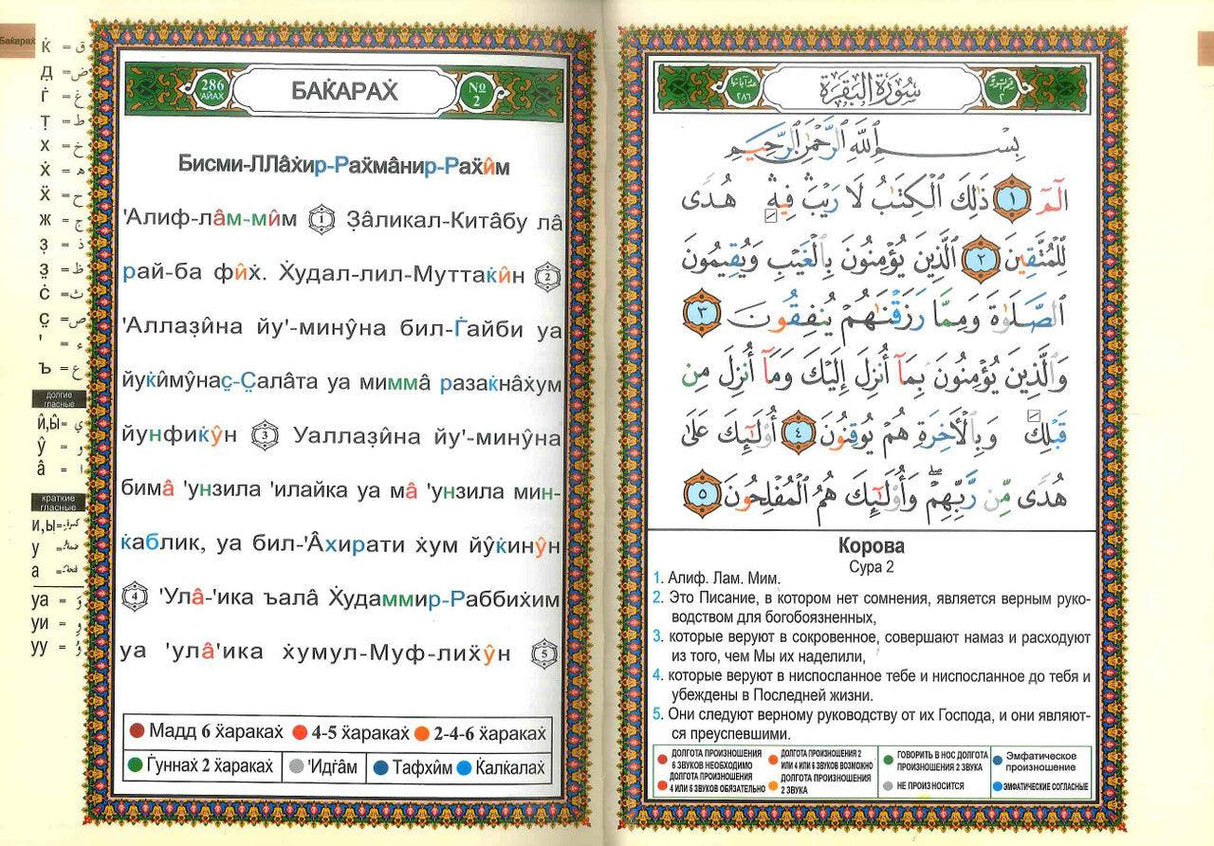 Баќарах
Ќ = ق
Д̣ = ض
Ѓ = غ
Т̣ = ط
Х = خ
Х̇ = ه
Ӿ = ح
Ж = ج
З̣ = ذ
З̤ = ظ
С̇ = ث
С̤ = ص
' = ء
Ъ = ع
долгие
гласные
Й̂,Ы̂ = ي
У̂ = و
â = ا
краткие
гласные
и,ы =
у =
а =
уа = وَ
уи = وِ
уу = وُ
286
АЙАХ
БАК̇АРАХ̇
№
2
Бисми-ЛЛâх̇ир-Рах̈мâнир-Рах̈и̂м
'Алиф-лâм-ми̂м 1 З̣âликал-Китâбу лâ
рай-ба фи̂х̇. Х̇удал-лил-Муттак̇и̂н 2
'Аллаз̣и̂на йу'-мину̂на бил-Г̇айби уа
йук̇и̂му̂нас̤-С̤алâта уа миммâ разак̇нâх̇ум
йунфик̇у̂н 3 Уаллаз̣и̂на йу'-мину̂на
бимâ 'унзила 'илайка уа мâ 'унзила мин-
к̇аблик, уа бил-'Âхирати х̇ум йу̂к̇ину̂н
4 'Улâ-'ика ъалâ Х̇удаммир-Раббих̇им
уа 'улâ'ика х̇умул-Муф-лих̈у̂н 5
Мадд 6 х̈араках̇ 4-5 х̈араках̇ 2-4-6 х̈араках̇
Г̇уннах̇ 2 х̈араках̇ 'Идг̇âм Тафхи̂м К̇алк̇алах̇
عدد آياتها
٢٨٦
سُورَةُ الْبَقَرَةِ
رقم السورة
٢
بِسْمِ اللَّهِ الرَّحْمَٰنِ الرَّحِيمِ
الٓمٓ ١ ذَٰلِكَ الْكِتَٰبُ لَا رَيْبَ ۛ فِيهِ ۛ هُدًى
لِّلْمُتَّقِينَ ٢ الَّذِينَ يُؤْمِنُونَ بِالْغَيْبِ وَيُقِيمُونَ
الصَّلَوٰةَ وَمِمَّا رَزَقْنَٰهُمْ يُنفِقُونَ ٣
وَالَّذِينَ يُؤْمِنُونَ بِمَآ أُنزِلَ إِلَيْكَ وَمَآ أُنزِلَ مِن
قَبْلِكَ وَبِالْآخِرَةِ هُمْ يُوقِنُونَ ٤ أُو۟لَٰٓئِكَ عَلَىٰ
هُدًى مِّن رَّبِّهِمْ ۖ وَأُو۟لَٰٓئِكَ هُمُ الْمُفْلِحُونَ ٥
Корова
Сура 2
1. Алиф. Лам. Мим.
2. Это Писание, в котором нет сомнения, является верным руко-
водством для богобоязненных,
3. которые веруют в сокровенное, совершают намаз и расходуют
из того, чем Мы их наделили,
4. которые веруют в ниспосланное тебе и ниспосланное до тебя и
убеждены в Последней жизни.
5. Они следуют верному руководству от их Господа, и они являют-
ся преуспевшими.
ДОЛГОТА ПРОИЗНОШЕНИЯ
6 ЗВУКОВ НЕОБХОДИМО
ДОЛГОТА ПРОИЗНОШЕНИЯ
4 ИЛИ 5 ЗВУКОВ ОБЯЗАТЕЛЬНО
ДОЛГОТА ПРОИЗНОШЕНИЯ 2
ИЛИ 4 ИЛИ 6 ЗВУКОВ ВОЗМОЖНО
ДОЛГОТА ПРОИЗНОШЕНИЯ
2 ЗВУКА
ГОВОРИТЬ В НОС ДОЛГОТА
ПРОИЗНОШЕНИЯ 2 ЗВУКА
НЕ ПРОИЗНОСИТСЯ
Эмфатическое
произношение
ЭМФАТИЧЕСКИЕ СОГЛАСНЫЕ